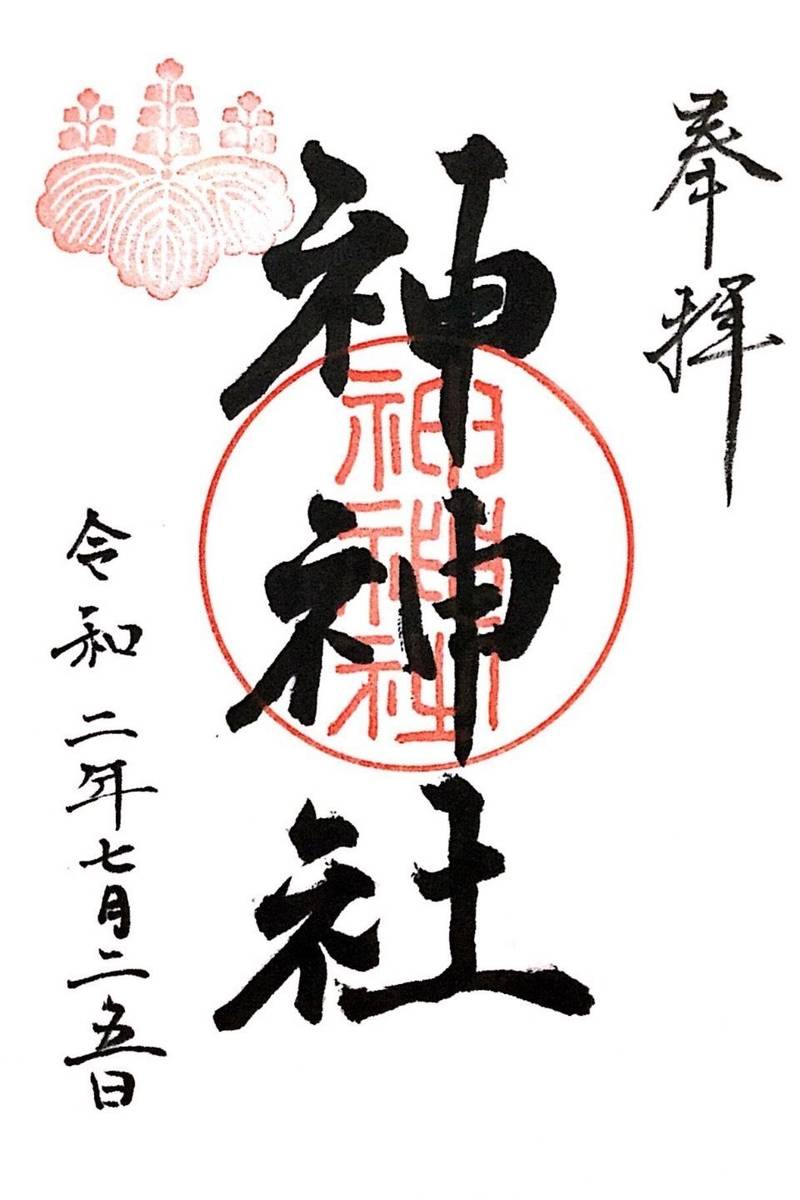 奉拝
神神社
神神社
令和二年七月二五日